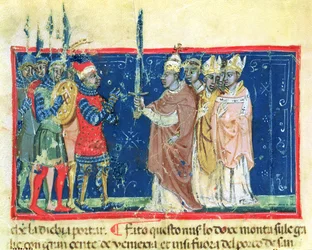 che la debia portar. ¶ Fato questo miss lo doxe monta su le ga
lie con gran zente de veniexia et insi fuora del porto de san